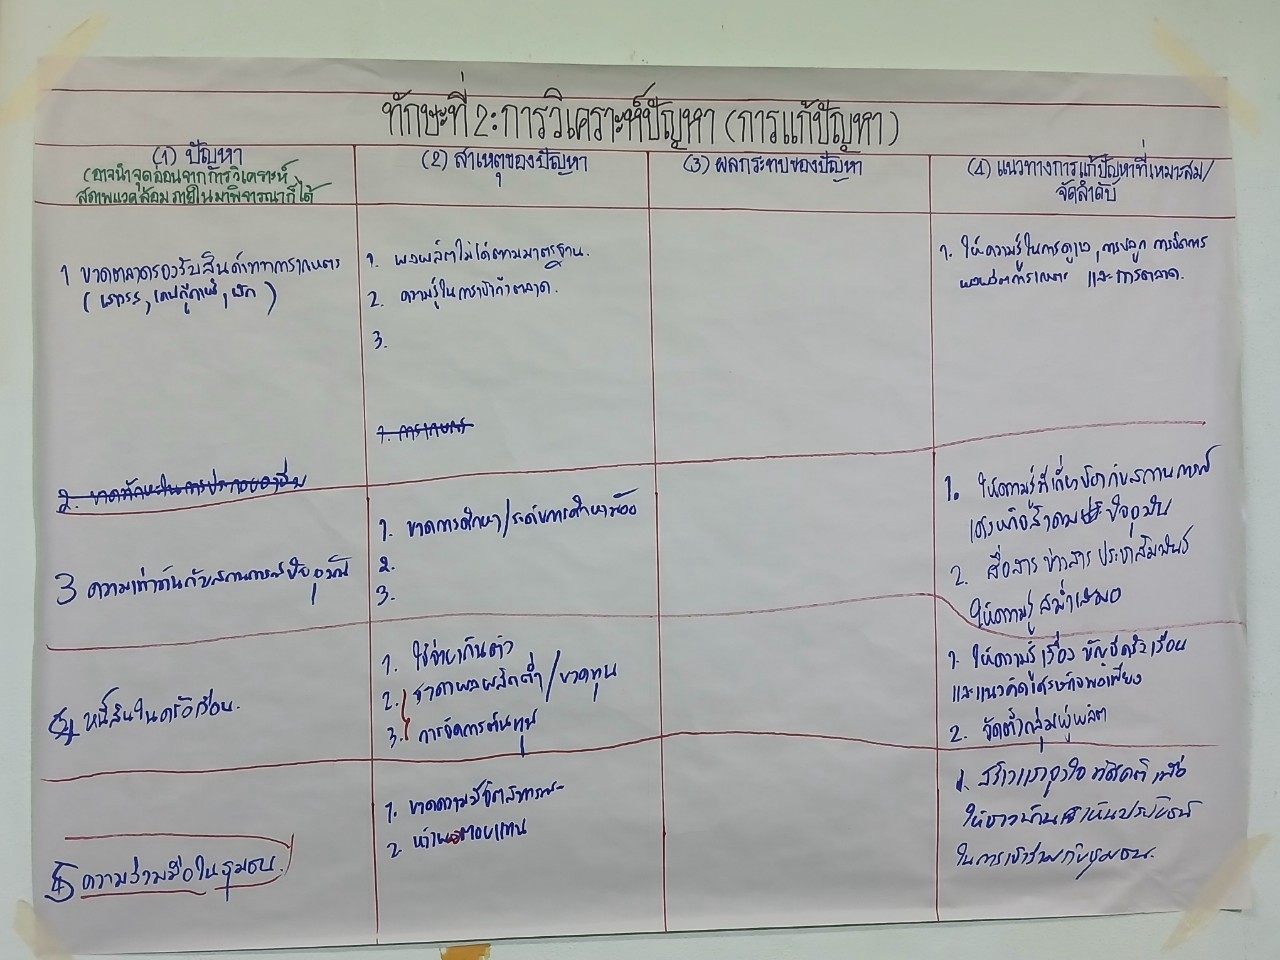 ทักษะที่ 2: การวิเคราะห์ปัญหา (การแก้ปัญหา)
(1) ปัญหา
(อาจนำจุดอ่อนจากการวิเคราะห์
สภาพแวดล้อมภายในมาพิจารณาก็ได้
(2) สาเหตุของปัญหา
(3) ผลกระทบของปัญหา
(4) แนวทางการแก้ปัญหาที่เหมาะสม/
จัดลำดับ
1 ขาดตลาดรองรับสินค้าทางการเกษตร
ผัก)
1. ผลผลิตไม่ได้ตามมาตรฐาน.
2. ความรู้ในการเข้าถึงตลาด.
3.
1. การเกษตร
1. ให้ความรู้ในการดูแล, การปลูก การจัดการ
ผลผลิตการเกษตร และการตลาด.
2. ขาดทักษะในการประกอบอาชีพ
3 ความเท่าทันกับสถานการณ์ปัจจุบัน
1. ขาดการศึกษา/ระดับการศึกษาน้อย
2.
3.
1. ให้ความรู้ที่เกี่ยวข้องกับสถานการณ์
เศรษฐกิจสังคม ปัจจุบัน
2. สื่อสาร ข่าวสาร ประชาสัมพันธ์
ให้ความรู้ สม่ำเสมอ
4 หนี้สินในครัวเรือน.
1. ใช้จ่ายเกินตัว
2. ราคาผลผลิตต่ำ/ขาดทุน
3. การจัดการต้นทุน
1. ให้ความรู้เรื่อง บัญชีครัวเรือน
และแนวคิดเศรษฐกิจพอเพียง
2. จัดตั้งกลุ่มผู้ผลิต
5 ความร่วมมือในชุมชน.
1. ขาดความมีจิตสาธารณะ
2. หวังผลตอบแทน
1. สร้างแรงจูงใจ ทัศนคติ เพื่อ
ให้ชาวบ้าน เห็นประโยชน์
ในการเข้าร่วมกับชุมชน.